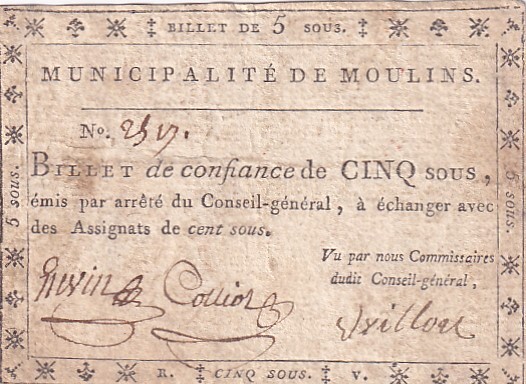 BILLET DE 5 SOUS.
MUNICIPALITÉ DE MOULINS.
No. 2517.
BILLET de confiance de CINQ SOUS,
émis par arrêté du Conseil-général, à échanger avec
des Assignats de cent sous.
Vu par nous Commissaires
dudit Conseil-général,
Colliot
5 sous.
5 sous.
R. CINQ SOUS. V.